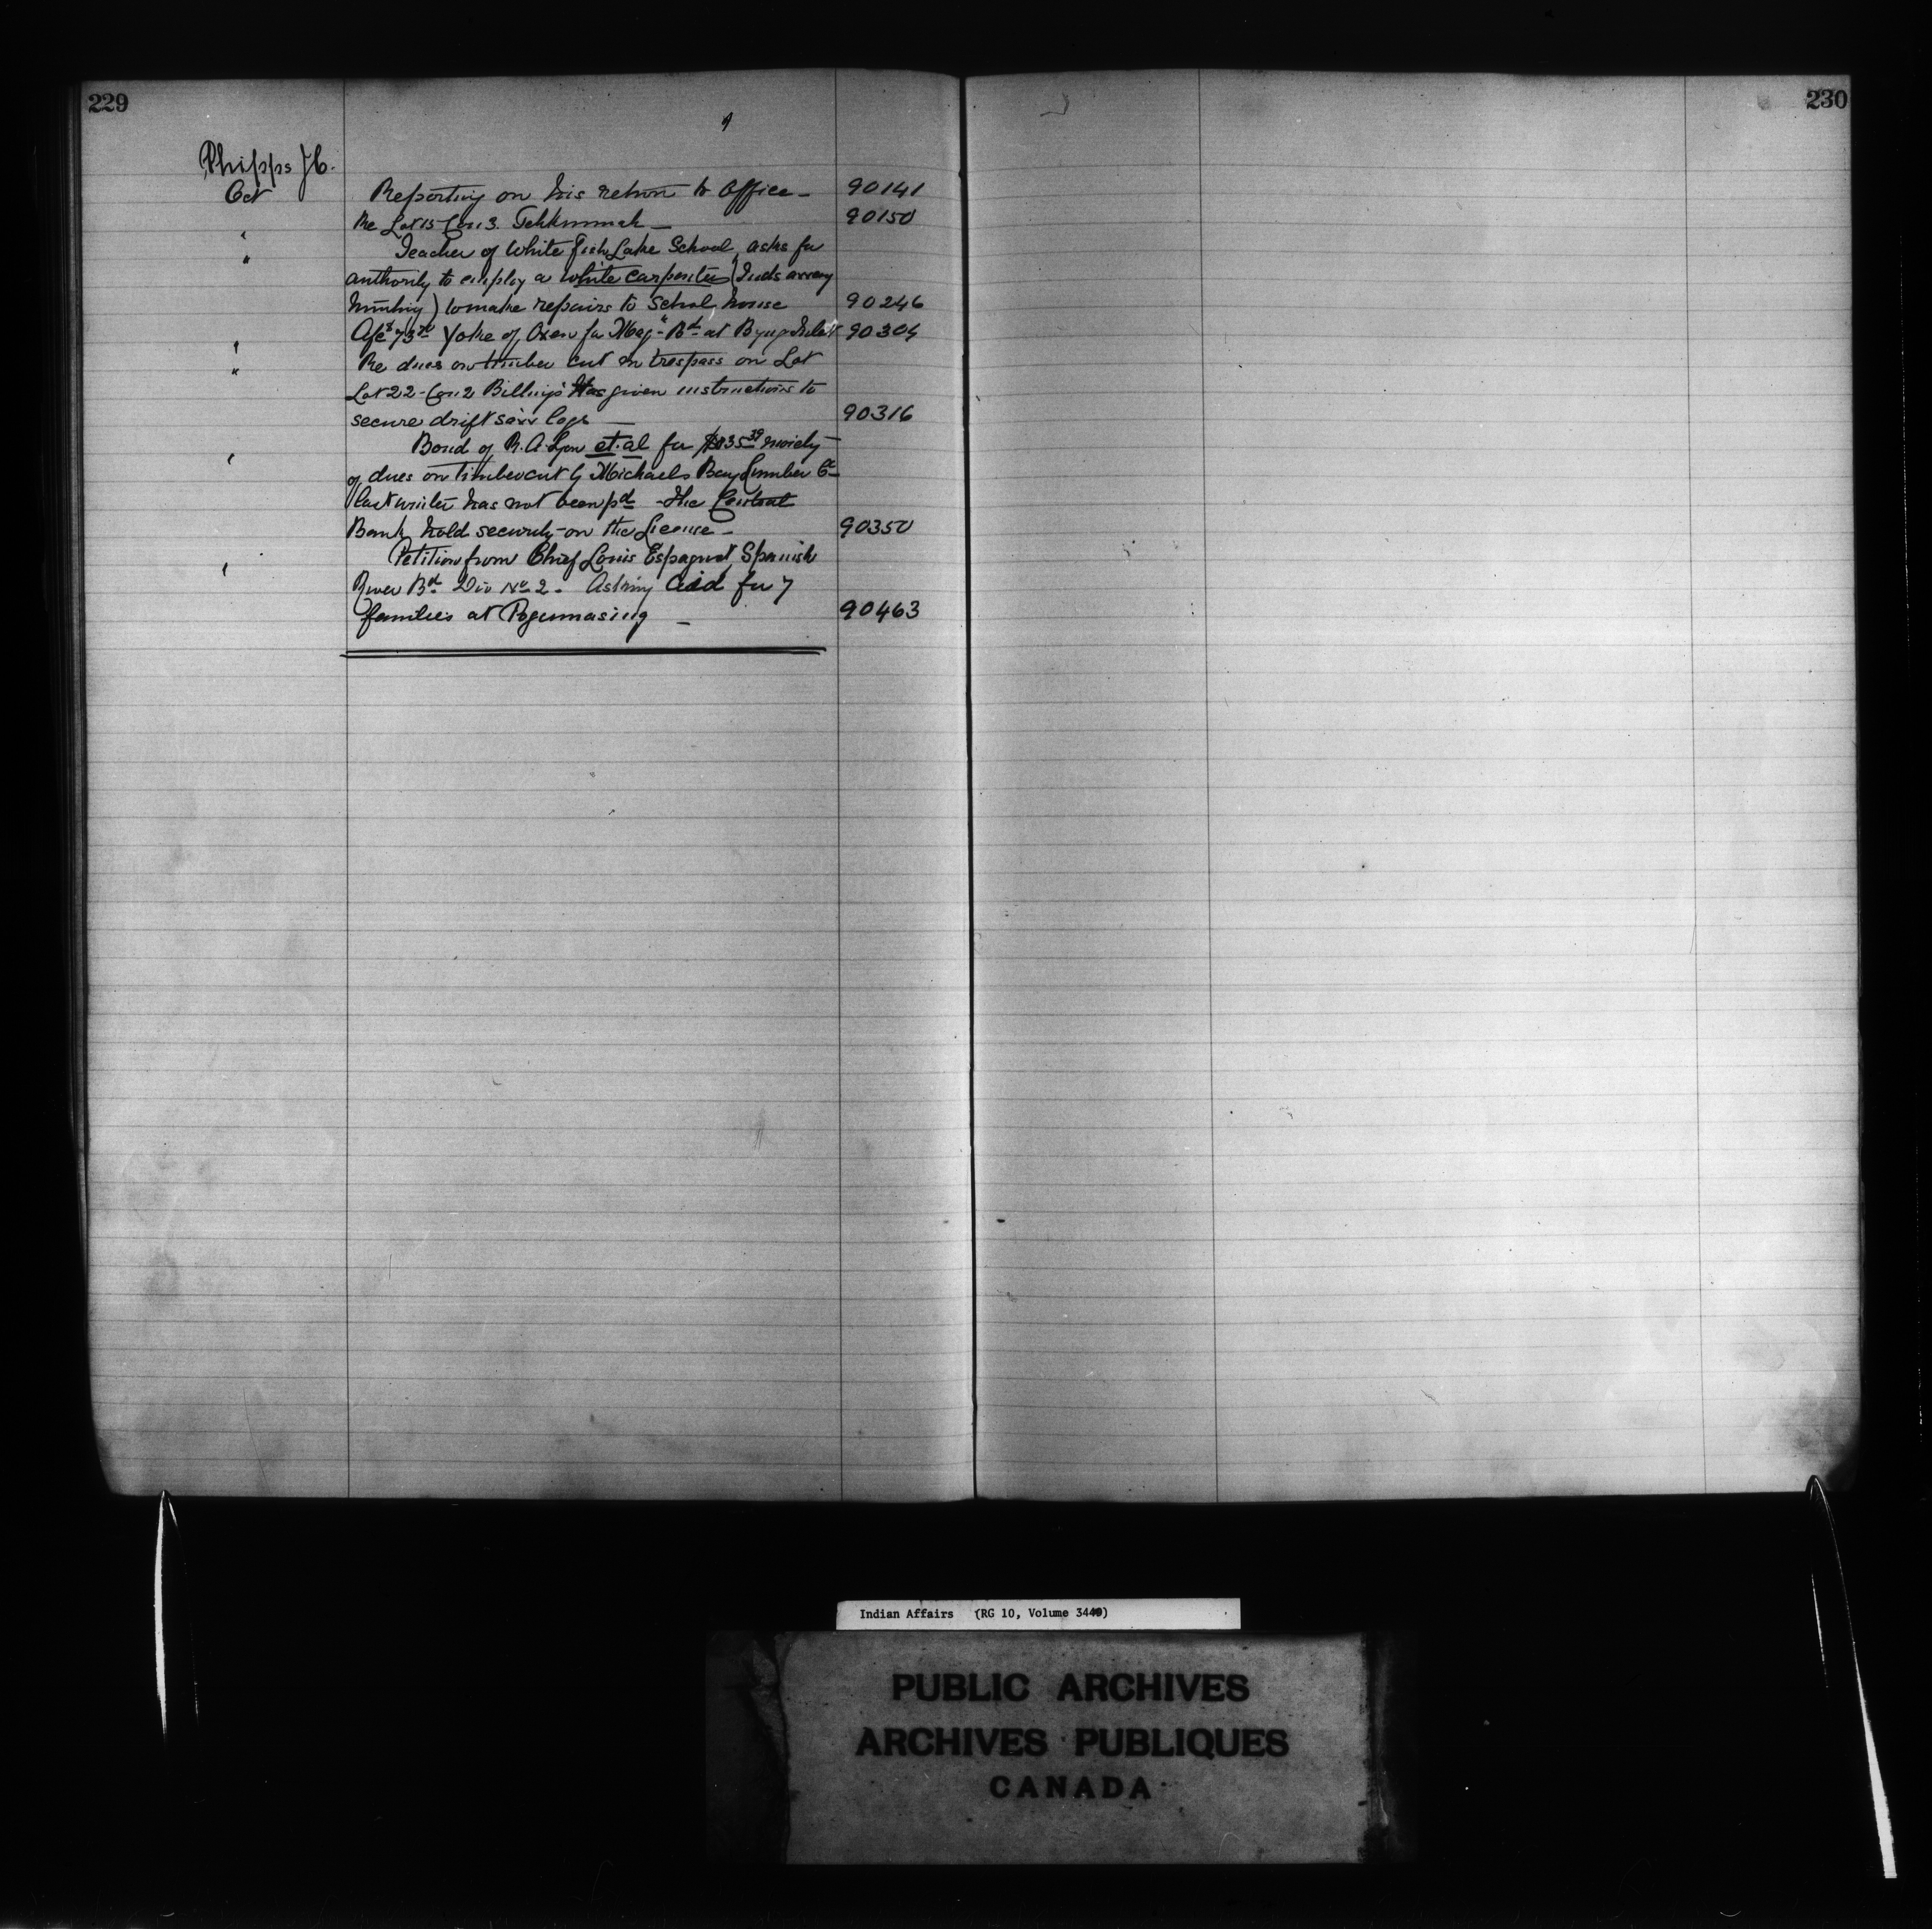 229
230
Phipps J.C.
Oct Reporting on his return to Office - 90141
" Re Lot 15 Con 3. Tehkummah - 90150
" Teacher of White Fish Lake School, asks for
authority to employ a white carpenter (Inds away
hunting) to make repairs to School house 90246
" Yoke of Oxen for Mag. Bd at Byng Inlet 90304
" Re dues on timber cut in trespass on Lot
Lot 22 - Con 2 Billings Has given instructions to
secure drift saw logs — 90316
" Bond of R. A. Lyon et. al for moiety
of dues on timber cut by Michaels Bay Lumber Co
last winter has not been pd - The Central
Bank hold security on the License - 90350
" Petition from Chief Louis Espagnol, Spanish
River Bd Div No 2. Asking aid for 7
families at Pogumasing - 90463
Indian Affairs (RG 10, Volume 3440)
PUBLIC ARCHIVES
ARCHIVES PUBLIQUES
CANADA